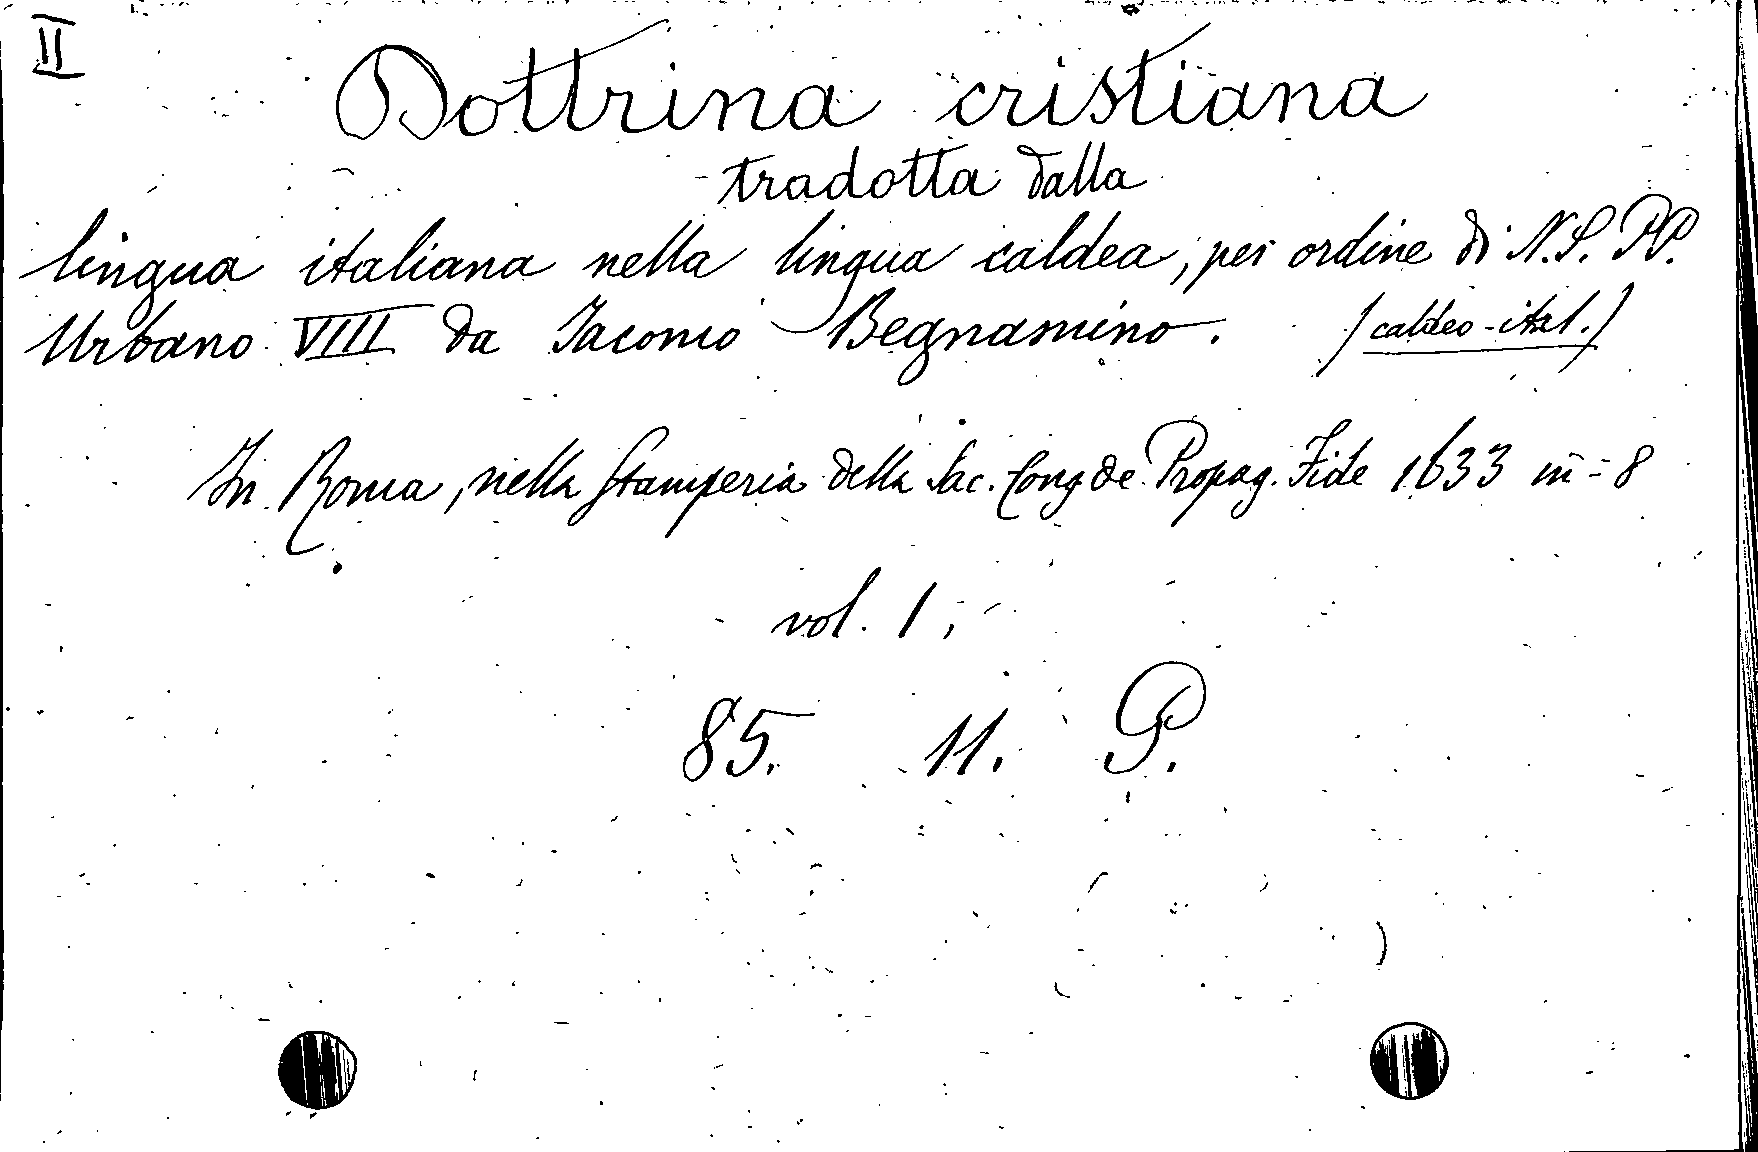 II
Dottrina cristiana
tradotta dalla
lingua italiana nella lingua caldea, per ordine di N.S. PP.
Urbano VIII da Iacomo Begnamino. (caldeo-ital.)
In Roma, nella Stamperia della Sac. Cong de Propag. Fide 1633 in-8
vol. 1,
85. 11. P.